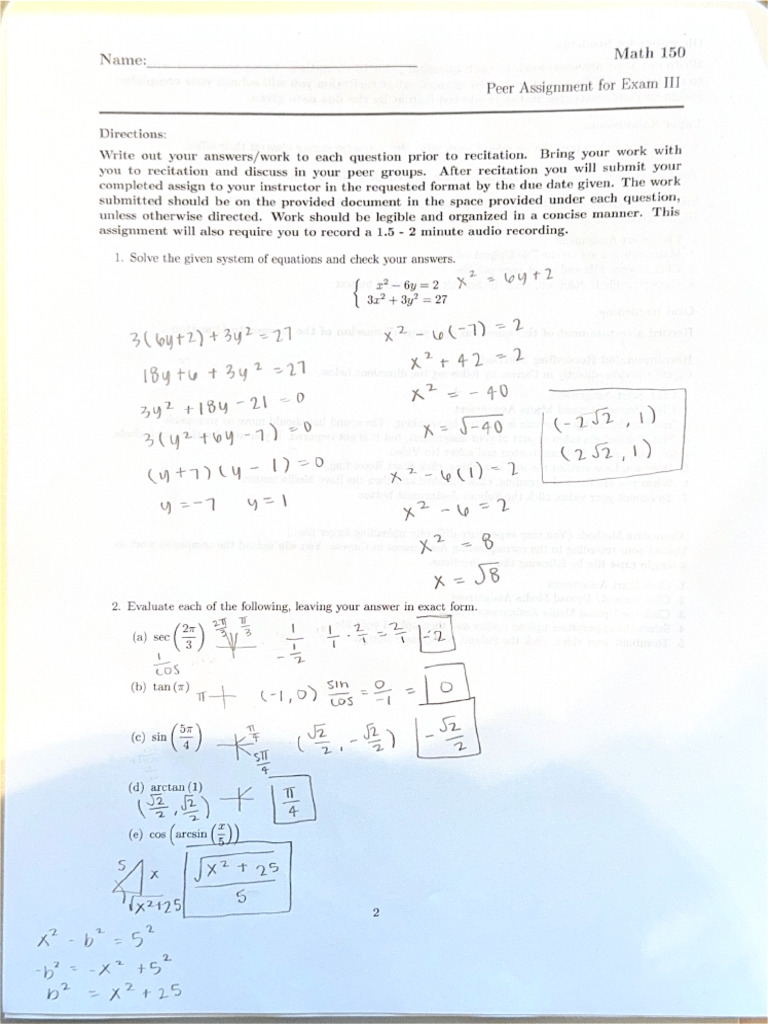 Name:
Math 150
Peer Assignment for Exam III
Directions:
Write out your answers/work to each question prior to recitation. Bring your work with
you to recitation and discuss in your peer groups. After recitation you will submit your
completed assign to your instructor in the requested format by the due date given. The work
submitted should be on the provided document in the space provided under each question,
unless otherwise directed. Work should be legible and organized in a concise manner. This
assignment will also require you to record a 1.5 - 2 minute audio recording.
1. Solve the given system of equations and check your answers.
x² − 6y = 2
3x² + 3y² = 27
x² = 6y + 2
3(6y+2) + 3y² = 27
18y + 6 + 3y² = 27
3y² + 18y − 21 = 0
3(y² + 6y − 7) = 0
(y+7)(y − 1) = 0
y = −7 y = 1
x² − 6(−7) = 2
x² + 42 = 2
x² = −40
x = √−40
x² − 6(1) = 2
x² − 6 = 2
x² = 8
x = √8
(−2√2, 1)
(2√2, 1)
2. Evaluate each of the following, leaving your answer in exact form.
(a) sec(2π/3) 2π/3 π/3 1/(−1/2) 1/1 · 2/1 = 2/1 −2
1/cos
(b) tan(π) π (−1, 0) sin/cos = 0/−1 = 0
(c) sin(5π/4) π/4 5π/4 (√2/2, −√2/2) −√2/2
(d) arctan(1)
(√2/2, √2/2) π/4
(e) cos(arcsin(x/5))
5 x √x²+25 √x² + 25/5
2
x² − b² = 5²
−b² = −x² + 5²
b² = x² + 25